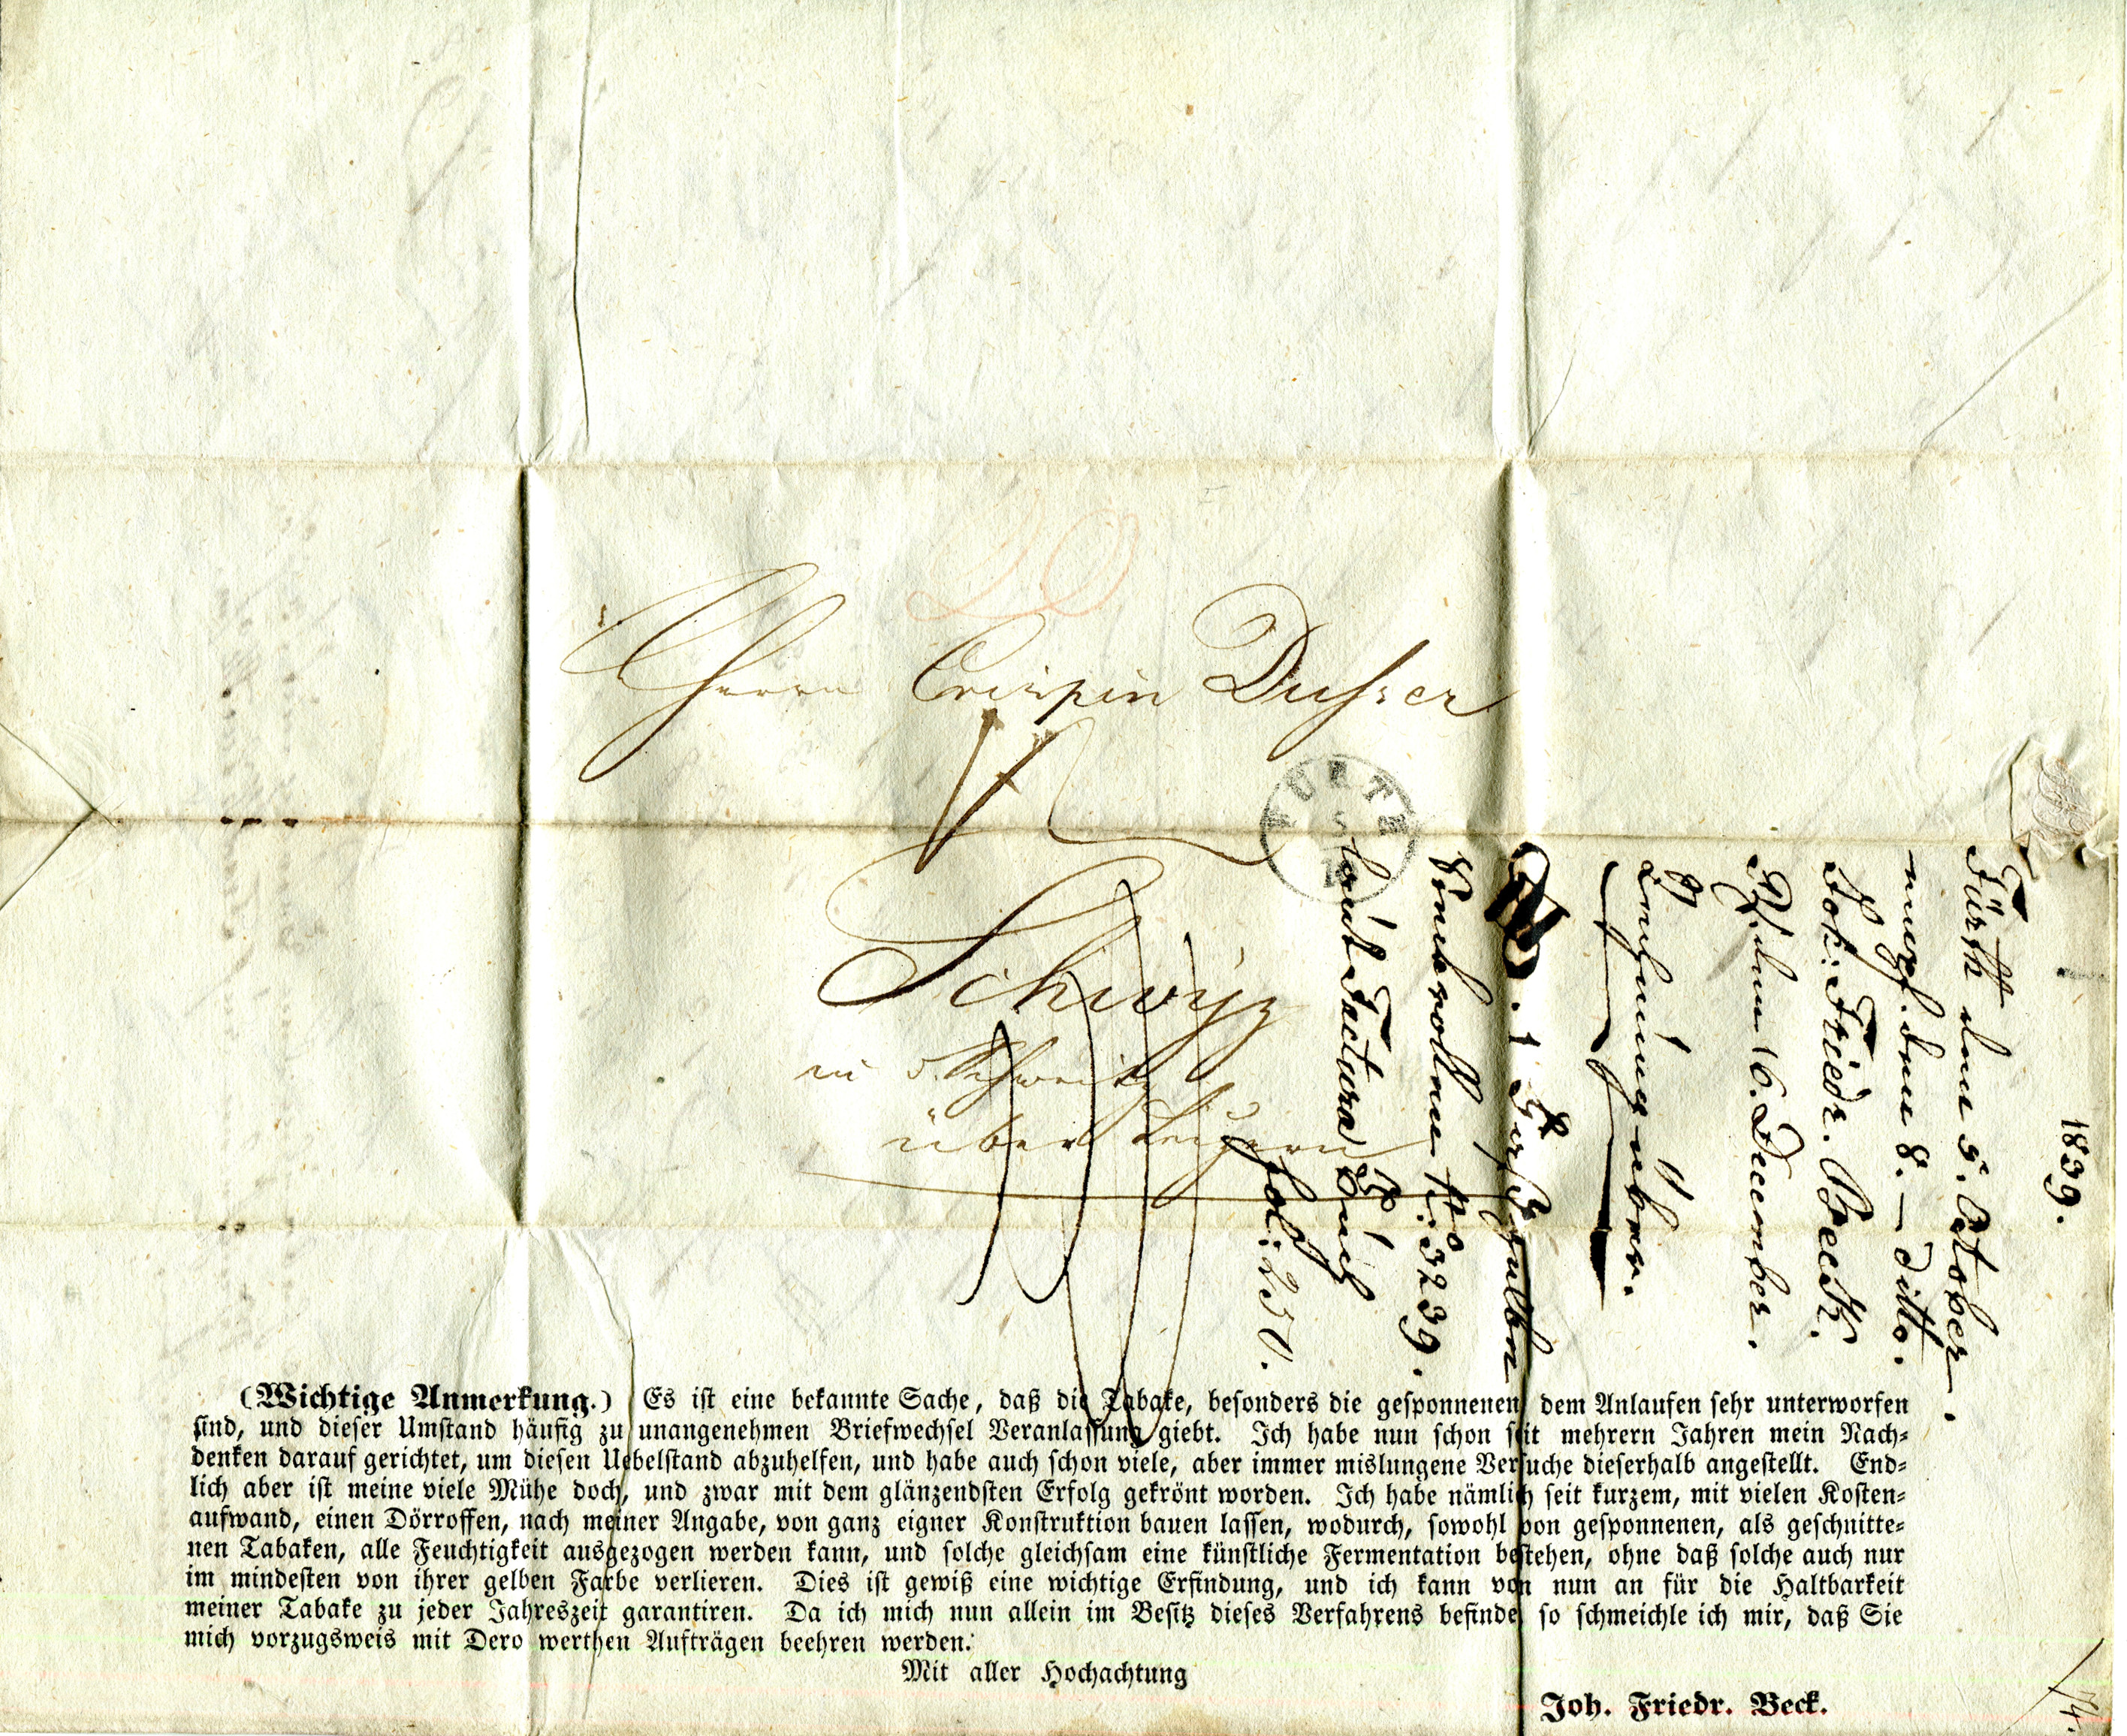 20
Herrn Crispin Dusser
Schwyz
in d. Schweitz
über Luzern
FÜRTH
1839.
Fürth den 5. October.
den 8. – ditto.
Joh: Friedr. Beck.
den 16. December.
1
No. 3239.
laut Factura
fol: 250.
(Wichtige Anmerkung.) Es ist eine bekannte Sache, daß die Tabake, besonders die gesponnenen dem Anlaufen sehr unterworfen
sind, und dieser Umstand häufig zu unangenehmen Briefwechsel Veranlassung giebt. Ich habe nun schon seit mehrern Jahren mein Nach-
denken darauf gerichtet, um diesen Uebelstand abzuhelfen, und habe auch schon viele, aber immer mislungene Versuche dieserhalb angestellt. End-
lich aber ist meine viele Mühe doch, und zwar mit dem glänzendsten Erfolg gekrönt worden. Ich habe nämlich seit kurzem, mit vielen Kosten-
aufwand, einen Dörroffen, nach meiner Angabe, von ganz eigner Konstruktion bauen lassen, wodurch, sowohl von gesponnenen, als geschnitte-
nen Tabaken, alle Feuchtigkeit ausgezogen werden kann, und solche gleichsam eine künstliche Fermentation bestehen, ohne daß solche auch nur
im mindesten von ihrer gelben Farbe verlieren. Dies ist gewiß eine wichtige Erfindung, und ich kann von nun an für die Haltbarkeit
meiner Tabake zu jeder Jahreszeit garantiren. Da ich mich nun allein im Besitz dieses Verfahrens befinde, so schmeichle ich mir, daß Sie
mich vorzugsweis mit Dero werthen Aufträgen beehren werden.
Mit aller Hochachtung
Joh. Friedr. Beck.